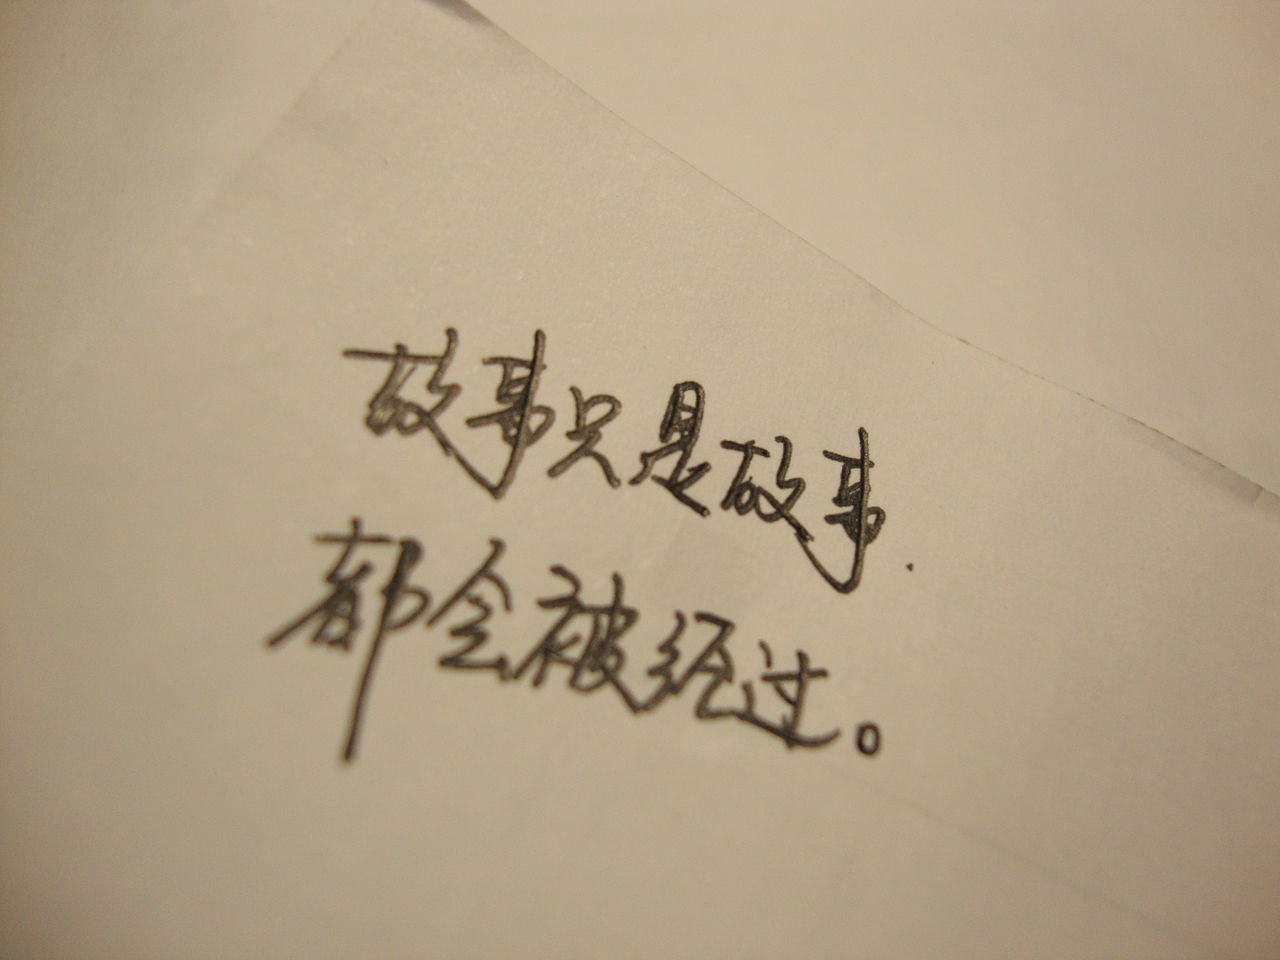 故事只是故事.
都会被经过。